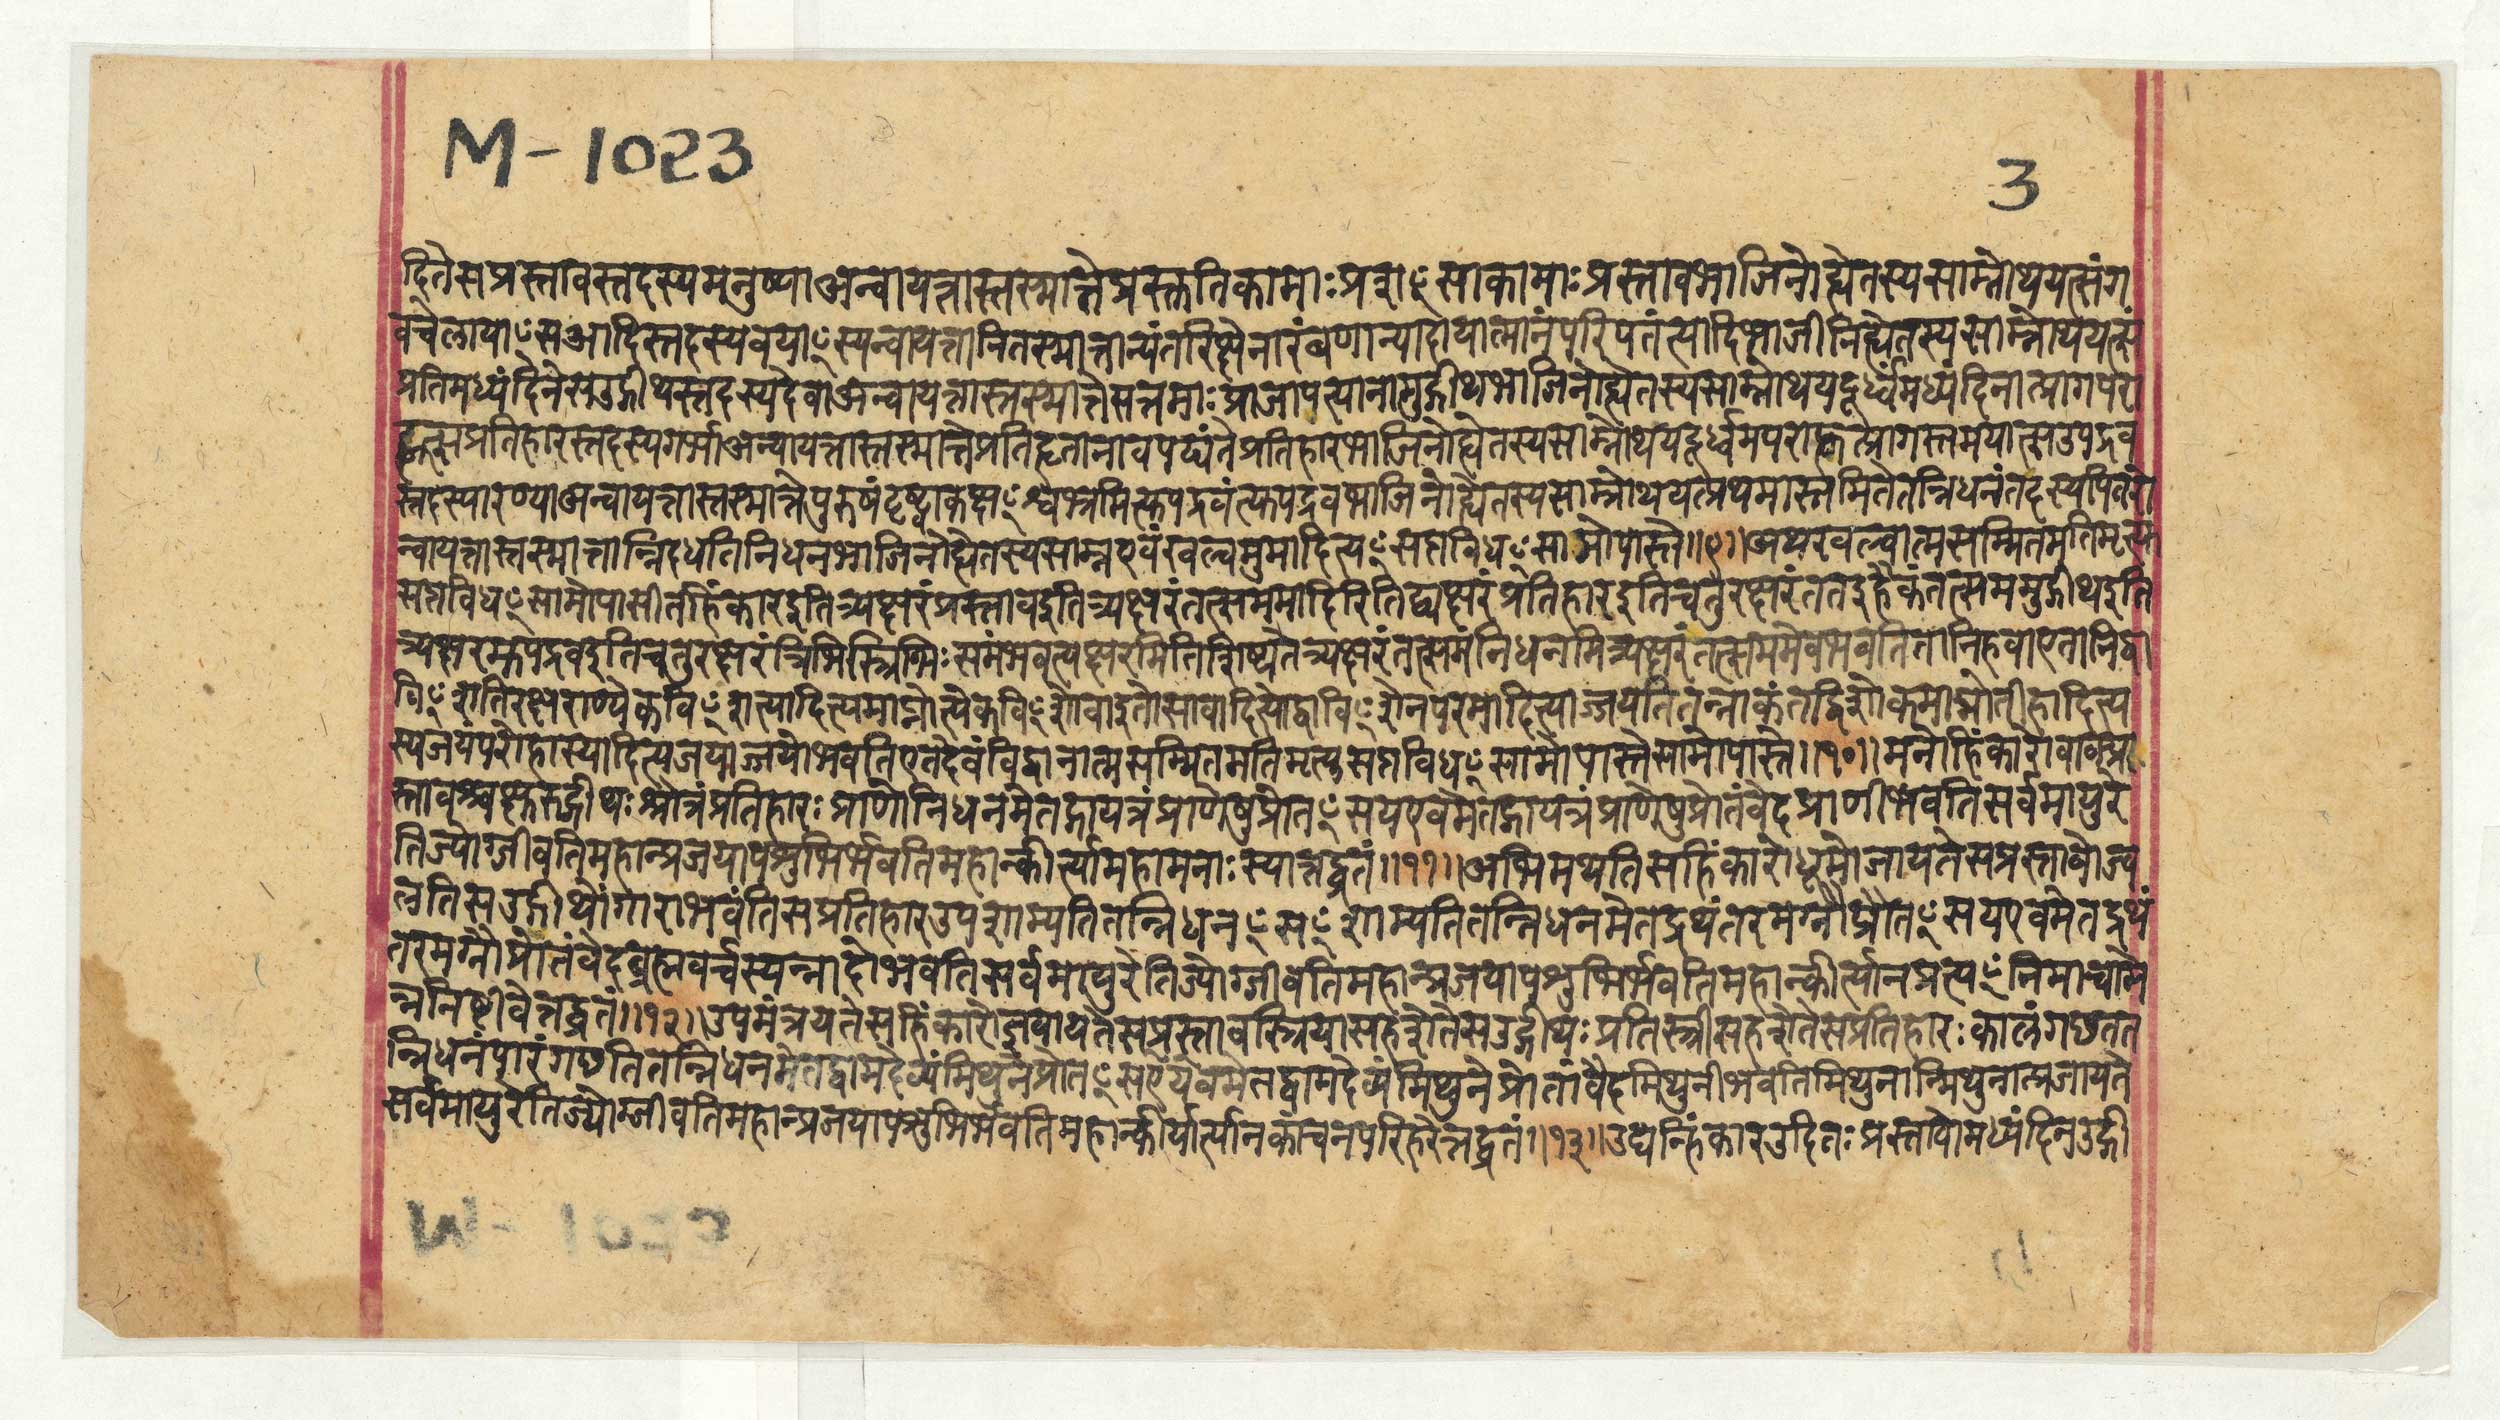 M-1023
3
दितेसप्रस्तावस्तदस्यमनुष्याअन्वायत्तास्तस्मात्तेप्रस्तुतिकामाःप्रशꣳसाकामाःप्रस्तावभाजिनोह्येतस्यसाम्नोथयत्संग
ववेलायाꣳसआदिस्तदस्यवयाꣳस्यन्वायत्तानितस्मात्तान्यंतरिक्षेनारंबणान्यादायात्मानंपरिपतंत्यादिभाजीनिह्येतस्यसाम्नोथयत्सं
प्रतिमध्यंदिनेसउद्गीथस्तदस्यदेवाअन्वायत्तास्तस्मात्तेसत्तमाःप्राजापत्यानामुद्गीथभाजिनोह्येतस्यसाम्नोथयदूर्ध्वंमध्यंदिनात्प्रागपरा
ह्णात्सप्रतिहारस्तदस्यगर्भाअन्वायत्तास्तस्मात्तेप्रतिहृतानावपद्यंतेप्रतिहारभाजिनोह्येतस्यसाम्नोथयदूर्ध्वमपराह्णात्प्रागस्तमयात्सउपद्रव
स्तदस्यारण्याअन्वायत्तास्तस्मात्तेपुरुषंदृष्ट्वाकक्षꣳश्वभ्रमित्युपद्रवंत्युपद्रवभाजिनोह्येतस्यसाम्नोथयत्प्रथमास्तमितेतन्निधनंतदस्यपितरो
न्वायत्तास्तस्मात्तान्निदधतिनिधनभाजिनोह्येतस्यसाम्नएवंखल्वमुमादित्यꣳसप्तविधꣳसामोपास्ते॥९॥अथखल्वात्मसम्मितमतिमृत्यु
सप्तविधꣳसामोपासीतहिंकारइतित्र्यक्षरंप्रस्तावइतित्र्यक्षरंतत्सममादिरितिद्व्यक्षरंप्रतिहारइतिचतुरक्षरंततइहैकंतत्सममुद्गीथइति
त्र्यक्षरमुपद्रवइतिचतुरक्षरंत्रिभिस्त्रिभिःसमंभवत्यक्षरमतिशिष्यतेत्र्यक्षरंतत्समंनिधनमित्र्यक्षरंतत्सममेवभवतितानिहवाएतानिद्वा
विꣳशतिरक्षराण्येकविꣳशत्यादित्यमाप्नोत्येकविꣳशोवाइतोसावादित्योद्वाविꣳशेनपरमादित्याज्जयतितन्नाकंतद्विशोकमाप्नोतीहादित्य
स्यजयंपरोहास्यादित्यजयाज्जयोभवतिएतदेवंविद्वानात्मसम्मितमतिमृत्युसप्तविधꣳसामोपास्तेसामोपास्ते॥१०॥मनोहिंकारोवाक्प्र
स्तावश्चक्षुरुद्गीथःश्रोत्रंप्रतिहारःप्राणोनिधनमेतद्गायत्रंप्राणेषुप्रोतꣳसयएवमेतद्गायत्रंप्राणेषुप्रोतंवेदप्राणीभवतिसर्वमायुरे
तिज्योग्जीवतिमहान्प्रजयापशुभिर्भवतिमहान्कीर्त्यामहामनाःस्यात्तद्व्रतं॥११॥अभिमथतिसहिंकारोधूमोजायतेसप्रस्तावोज्व
लतिसउद्गीथोंगाराभवंतिसप्रतिहारउपशाम्यतितन्निधनꣳसꣳशाम्यतितन्निधनमेतद्रथंतरमग्नौप्रोतꣳसयएवमेतद्रथं
तरमग्नौप्रोतंवेदब्रह्मवर्चस्यन्नादोभवतिसर्वमायुरेतिज्योग्जीवतिमहान्प्रजयापशुभिर्भवतिमहान्कीर्त्यानप्रत्यꣳनिमाचामे
न्ननिष्ठीवेत्तद्व्रतं॥१२॥उपमंत्रयतेसहिंकारोज्ञपायतेसप्रस्तावस्त्रियासहशेतेसउद्गीथःप्रतिस्त्रीसहशेतेसप्रतिहारःकालंगछतत
न्निधनंपारंगछतितन्निधनमेतद्वामदेव्यंमिथुनेप्रोतꣳसएयेवमेतद्वामदेव्यंमिथुनेप्रोतांवेदमिथुनीभवतिमिथुनान्मिथुनात्प्रजायते
सर्वमायुरेतिज्योग्जीवतिमहान्प्रजयापशुभिर्भवतिमहान्कीर्यार्त्यानकांचनपरिहरेत्तद्व्रतं॥१३॥उद्यन्हिंकारउदितःप्रस्तावोमध्यंदिनउद्गी